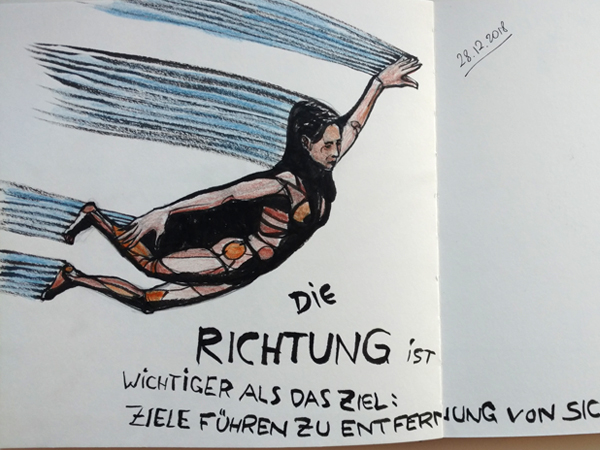 28.12.2018
Die
RICHTUNG iST
WiCHTiGER ALS DAS ZIEL:
ZIELE FÜHREN ZU ENTFERNUNG VON SIC